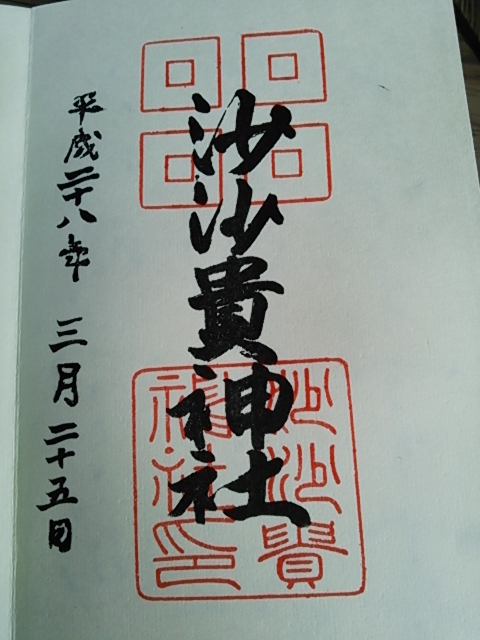 沙沙貴神社
平成二十八年 三月二十五日
沙沙貴
神社印